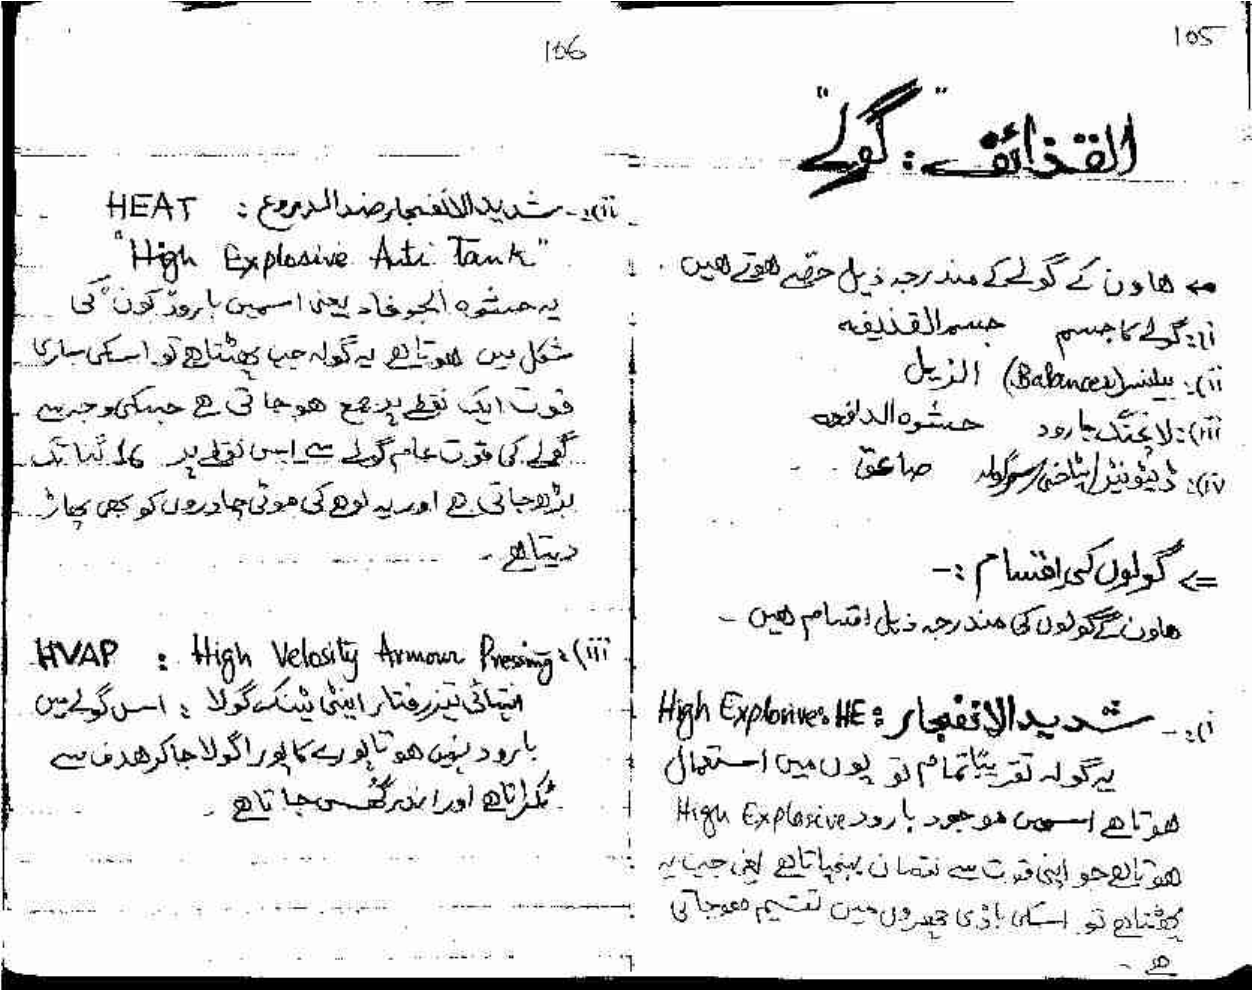 105
القذائف : "گولے"
← ھاون کے گولے کے مندرجہ ذیل حصے ھوتے ھیں .
i): گولے کا جسم جسم القذیفہ
ii): بیلنسر (Balancer) الزیل
iii): لانچنگ بارود حشوہ الدافعہ
iv): ڈیٹونیٹر/پٹاخی/سر گولہ صاعق
=> گولوں کی اقسام :-
ھاون کے گولوں کی مندرجہ ذیل اقسام ھیں -
i):- شدید الانفجار : High Explosive: HE
یہ گولہ تقریبًا تمام توپوں میں استعمال
ھوتا ھے اسمیں موجود بارود High Explosive
ھوتا ھے جو اپنی قوت سے نقصان پہنچاتا ھے یعنی جب یہ
پھٹتا ھے تو اسکی باڈی چھروں میں تقسیم ھو جاتی
ھے -
106
ii):- شدید الانفجار ضد الدروع : HEAT
"High Explosive Anti Tank"
یہ حشوہ الجوفاء یعنی اسمیں بارود "کون" کی
شکل میں ھوتا ھے یہ گولہ جب پھٹتا ھے تو اسکی ساری
قوت ایک نقطے پر جمع ھو جاتی ھے جسکی وجہ سے
گولے کی قوت عام گولے سے اس نقطے پر 16 گنا تک
بڑھ جاتی ھے اور یہ لوھے کی موٹی چادروں کو بھی پھاڑ
دیتا ھے -
iii): HVAP : High Velosity Armour Pressing
انتہائی تیز رفتار اینٹی ٹینک گولا : اس گولے میں
بارود نہیں ھوتا پورے کا پورا گولا جا کر ھدف سے
ٹکراتا ھے اور اندر گھس جاتا ھے .